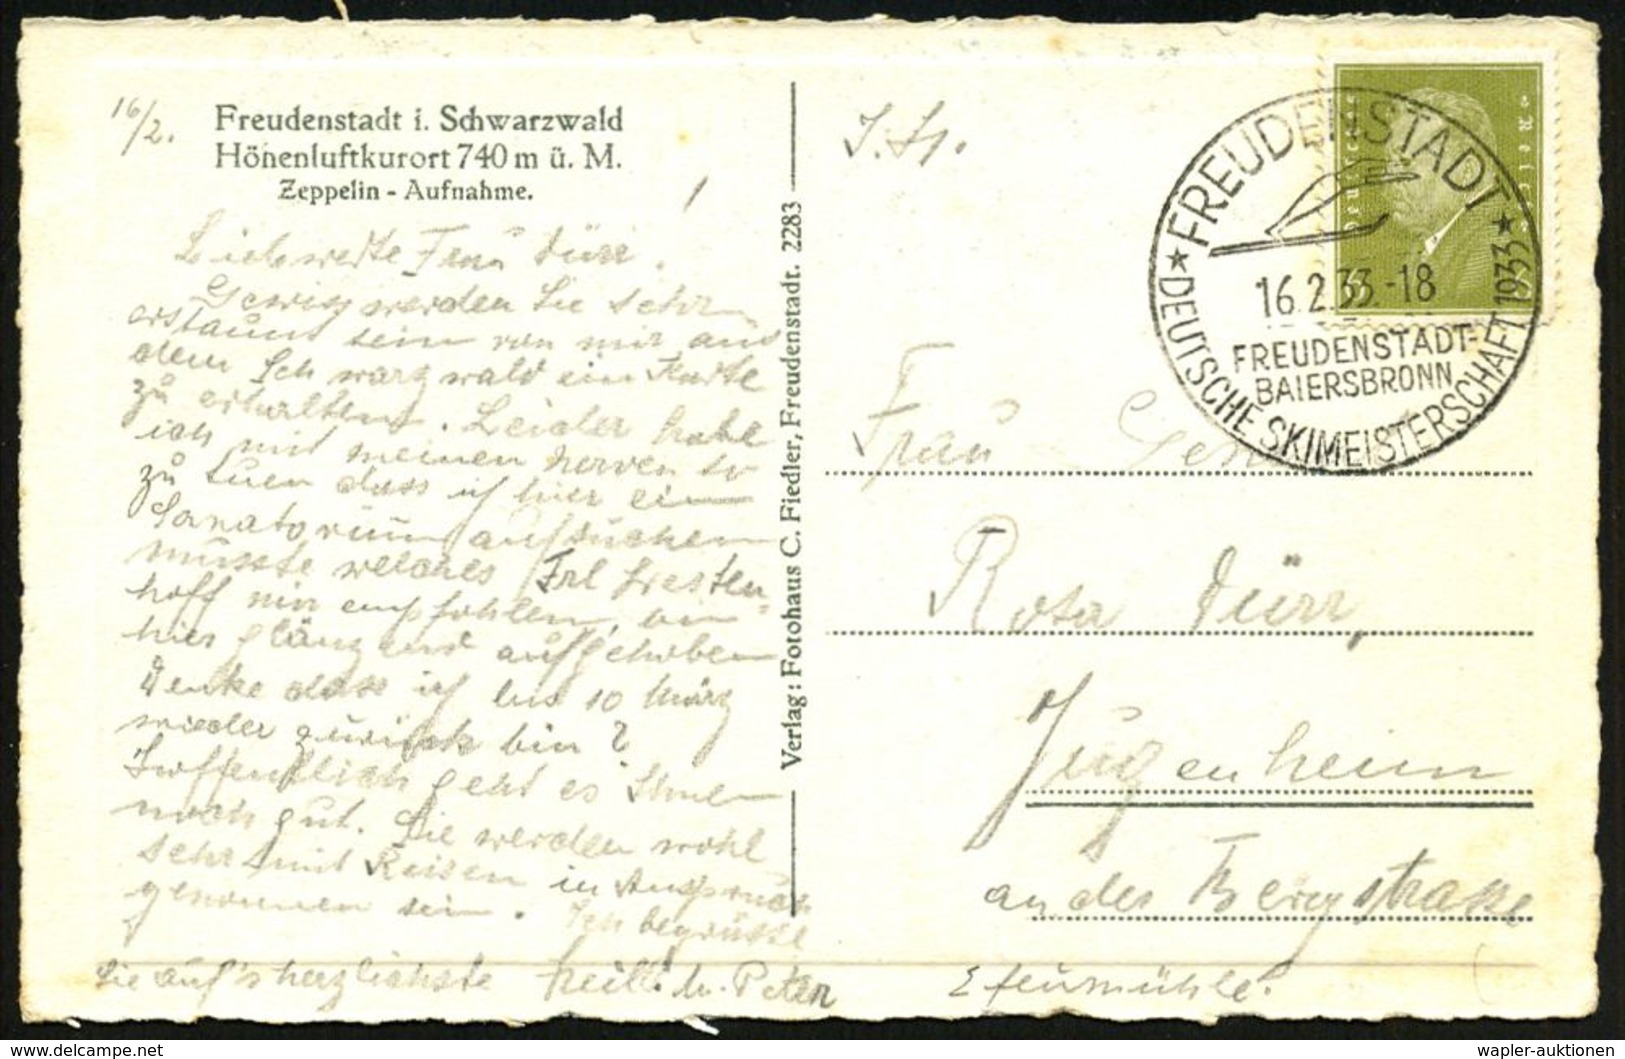 16/2.
Freudenstadt i. Schwarzwald
Höhenluftkurort 740 m ü. M.
Zeppelin - Aufnahme.
Liebwerte Frau Dürr!
Gewiss werden Sie sehr
erstaunt sein von mir aus
dem Schwarzwald ein Karte
zu erhalten. Leider habe
ich mit meinen Nerven so
zu tuen dass ich hier ein
Sanatorium aufsuchen
musste welches Frl Westen-
hoff mir empfohlen, bin
hier glänzend aufgehoben
Denke dass ich bis 10 März
wieder zurück bin?
Hoffentlich geht es Ihnen
noch gut. Sie werden wohl
sehr mit Reisen in Anspruch
genommen sein. Ich begrüsse
Sie auf's herzlichste Heil! Peter
Verlag: Fotohaus C. Fiedler, Freudenstadt. 2283
★ FREUDENSTADT ★
16.2.33.-18
FREUDENSTADT-
BAIERSBRONN
DEUTSCHE SKIMEISTERSCHAFT 1933
Deutsches Reich
6 6
Frau
Rosa Dürr,
Jugenheim
an der Bergstrasse
Efeumühle.
wapler-auktionen